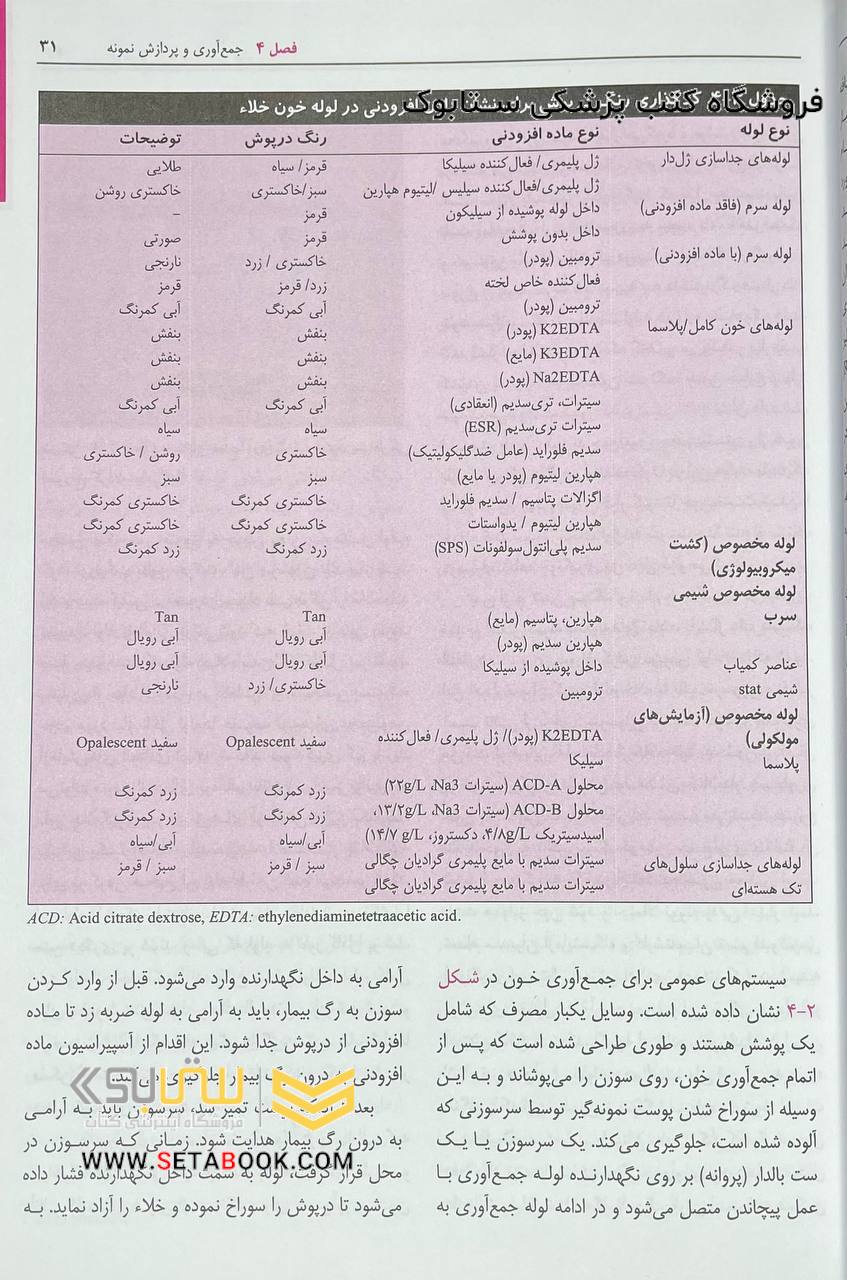 فصل ۴ جمع‌آوری و پردازش نمونه ۳۱
فروشگاه کتب پزشکی ستابوک
افزودنی در لوله خون خلاء
نوع لوله نوع ماده افزودنی رنگ درپوش توضیحات
لوله‌های جداسازی ژل‌دار ژل پلیمری/ فعال‌کننده سیلیکا قرمز/ سیاه طلایی
ژل پلیمری/فعال‌کننده سیلیس /لیتیوم هپارین سبز/خاکستری خاکستری روشن
لوله سرم (فاقد ماده افزودنی) داخل لوله پوشیده از سیلیکون قرمز –
داخل بدون پوشش قرمز صورتی
لوله سرم (با ماده افزودنی) ترومبین (پودر) خاکستری / زرد نارنجی
فعال‌کننده خاص لخته زرد/ قرمز قرمز
ترومبین (پودر) آبی کمرنگ آبی کمرنگ
لوله‌های خون کامل/پلاسما K2EDTA (پودر) بنفش بنفش
K3EDTA (مایع) بنفش بنفش
Na2EDTA (پودر) بنفش بنفش
سیترات، تری‌سدیم (انعقادی) آبی کمرنگ آبی کمرنگ
سیترات تری‌سدیم (ESR) سیاه سیاه
سدیم فلوراید (عامل ضدگلیکولیتیک) خاکستری روشن / خاکستری
هپارین لیتیوم (پودر یا مایع) سبز سبز
اگزالات پتاسیم / سدیم فلوراید خاکستری کمرنگ خاکستری کمرنگ
هپارین لیتیوم / یدواستات خاکستری کمرنگ خاکستری کمرنگ
لوله مخصوص (کشت سدیم پلی‌انتول‌سولفونات (SPS) زرد کمرنگ زرد کمرنگ
میکروبیولوژی)
لوله مخصوص شیمی
سرب هپارین، پتاسیم (مایع) Tan Tan
هپارین سدیم (پودر) آبی رویال آبی رویال
عناصر کمیاب داخل پوشیده از سیلیکا آبی رویال آبی رویال
شیمی stat ترومبین خاکستری/ زرد نارنجی
لوله مخصوص (آزمایش‌های
مولکولی) K2EDTA (پودر)/ ژل پلیمری/ فعال‌کننده سفید Opalescent سفید Opalescent
پلاسما سیلیکا
محلول ACD-A (سیترات Na3، ۲۲g/L) زرد کمرنگ زرد کمرنگ
محلول ACD-B (سیترات Na3، ۱۳/۲g/L، زرد کمرنگ زرد کمرنگ
اسیدسیتریک ۴/۸g/L، دکستروز، ۱۴/۷ g/L) آبی/سیاه آبی/سیاه
لوله‌های جداسازی سلول‌های سیترات سدیم با مایع پلیمری گرادیان چگالی سبز / قرمز سبز / قرمز
تک هسته‌ای سیترات سدیم با مایع پلیمری گرادیان چگالی
ACD: Acid citrate dextrose, EDTA: ethylenediaminetetraacetic acid.
سیستم‌های عمومی برای جمع‌آوری خون در شکل
۲-۴ نشان داده شده است. وسایل یکبار مصرف که شامل
یک پوشش هستند و طوری طراحی شده است که پس از
اتمام جمع‌آوری خون، روی سوزن را می‌پوشاند و به این
وسیله از سوراخ شدن پوست نمونه‌گیر توسط سرسوزنی که
آلوده شده است، جلوگیری می‌کند. یک سرسوزن یا یک
ست بالدار (پروانه) بر روی نگهدارنده لوله جمع‌آوری با
عمل پیچاندن متصل می‌شود و در ادامه لوله جمع‌آوری به
آرامی به داخل نگهدارنده وارد می‌شود. قبل از وارد کردن
سوزن به رگ بیمار، باید به آرامی به لوله ضربه زد تا ماده
افزودنی از درپوش جدا شود. این اقدام از آسپیراسیون ماده
افزودنی به درون رگ بیمار جلوگیری
تمیز شد، سرسوزن باید به آرامی
به درون رگ بیمار هدایت شود. زمانی که سرسوزن در
محل قرار گرفت، لوله به سمت داخل نگهدارنده فشار داده
می‌شود تا درپوش را سوراخ نموده و خلاء را آزاد نماید. به
ستابوک
فروشگاه اینترنتی کتاب
WWW.SETABOOK.COM